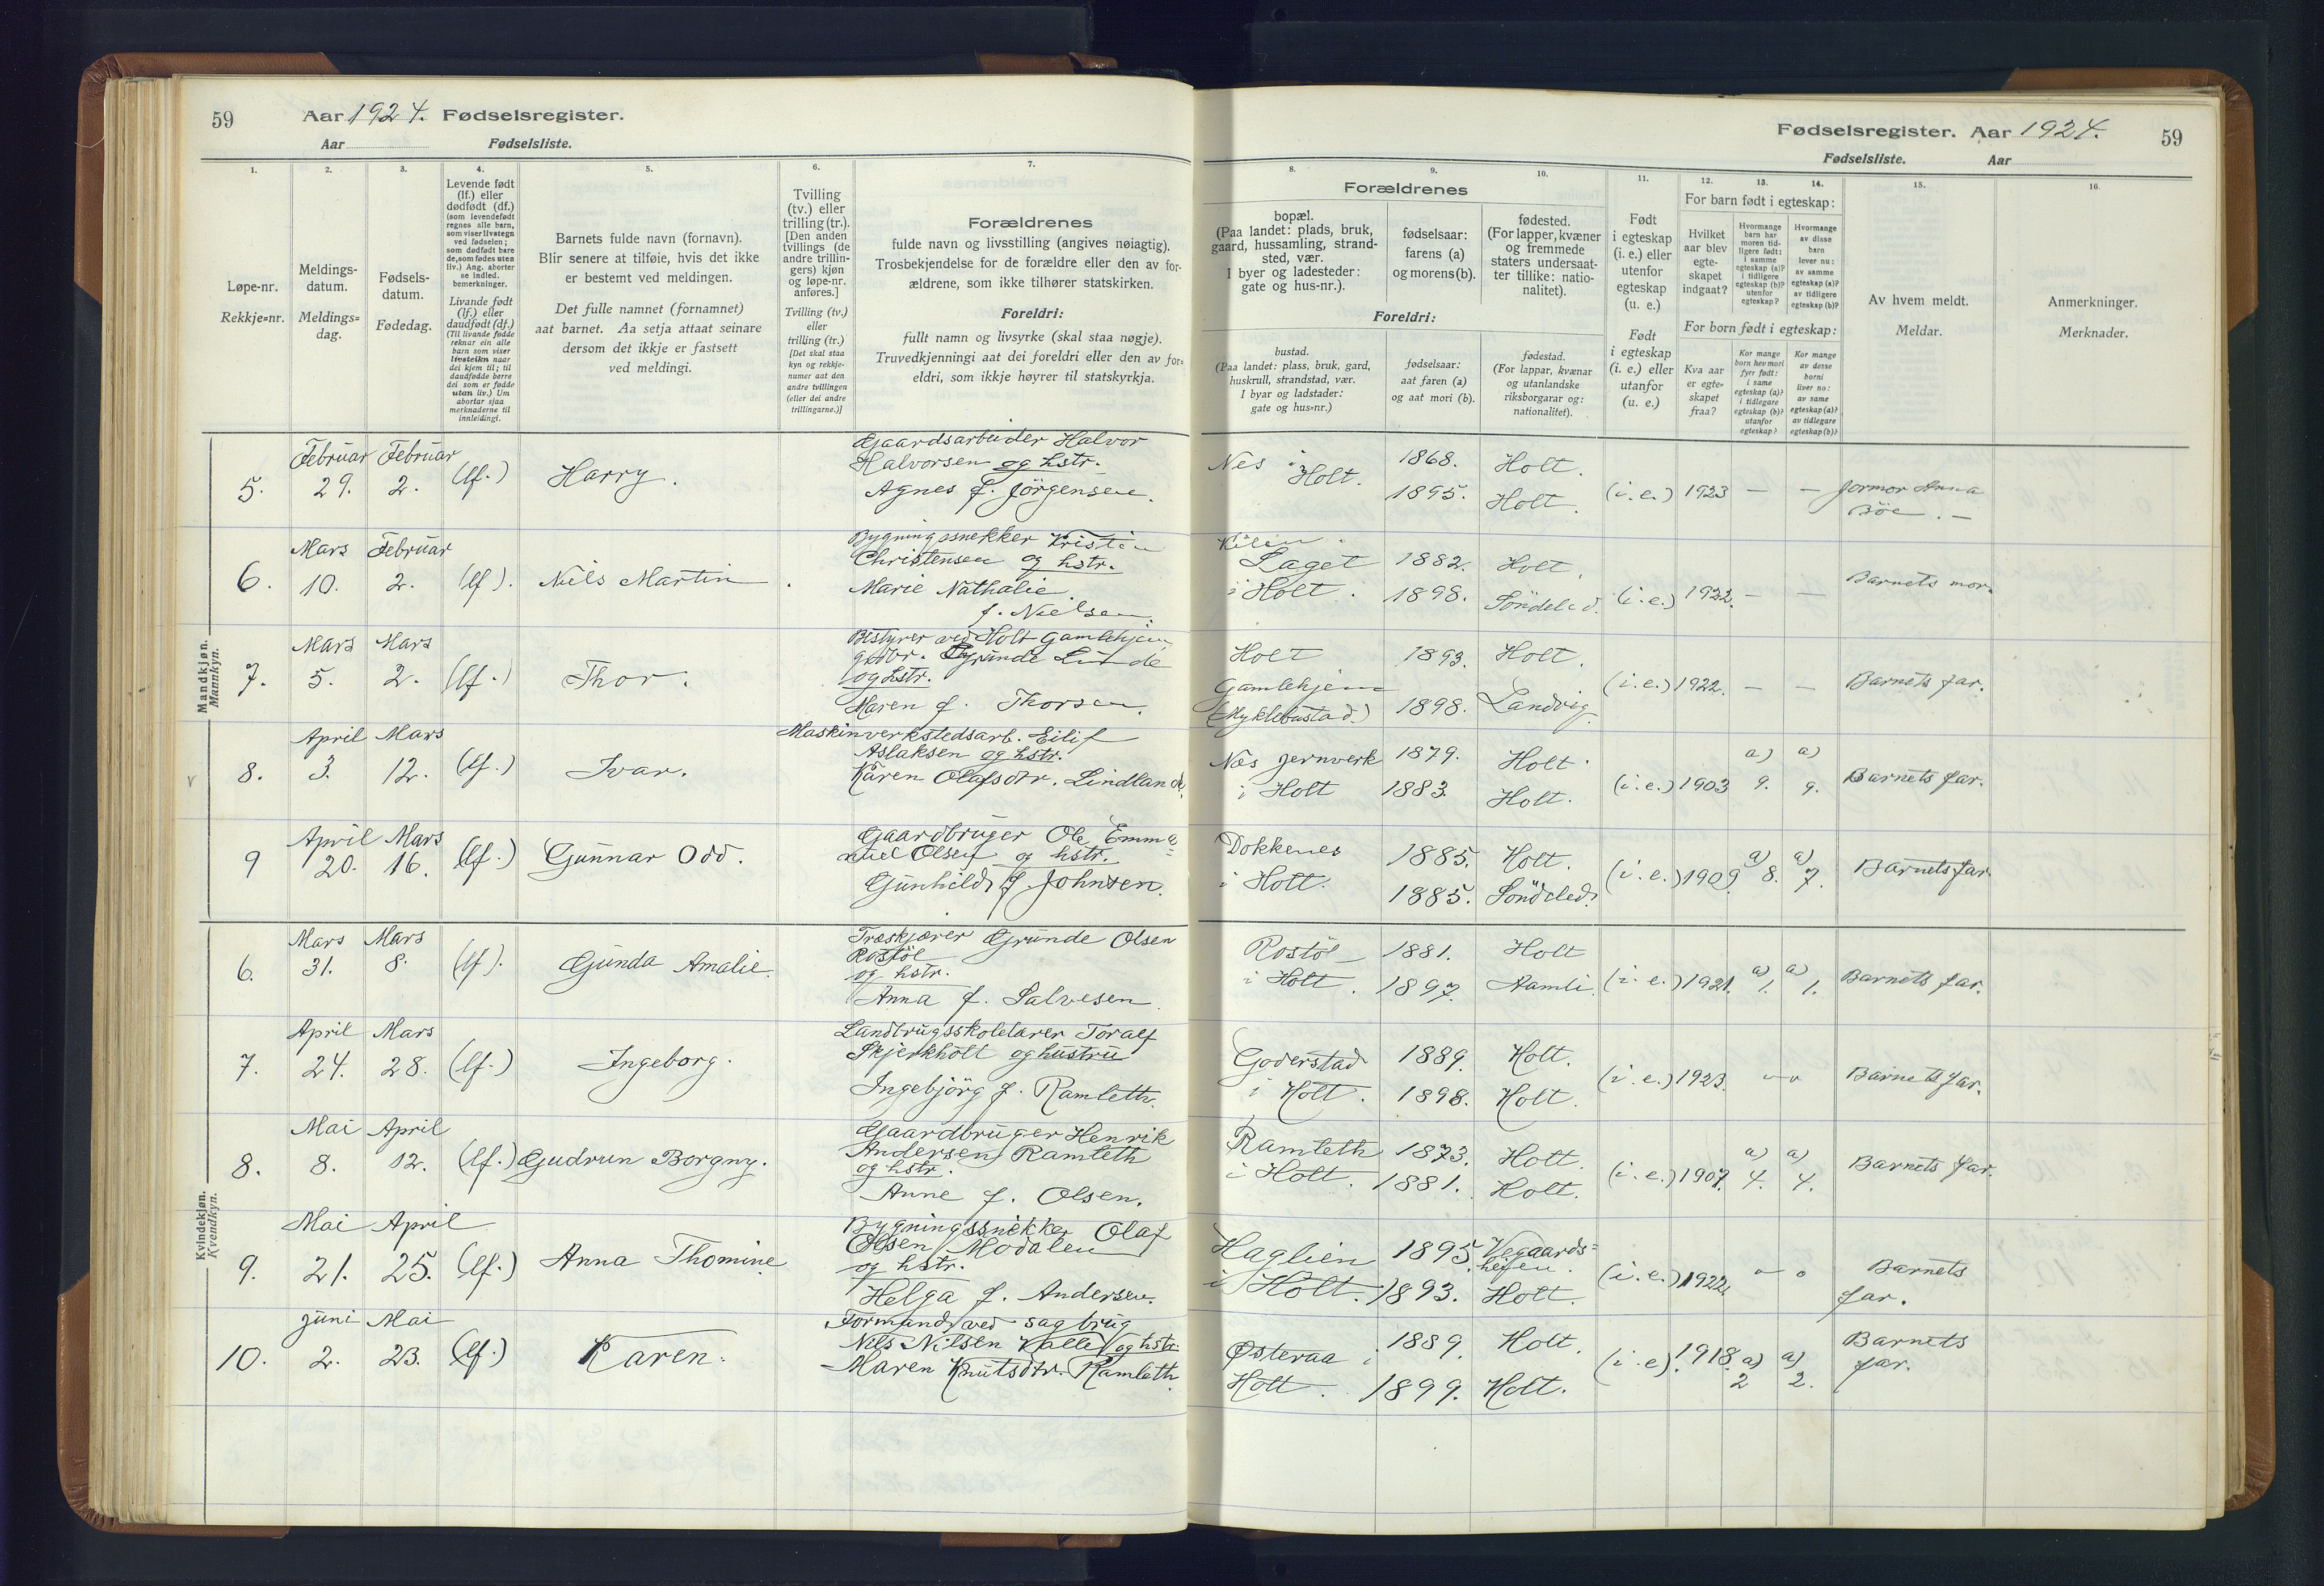 59
Aar 1924. Fødselsregister.
Aar Fødselsliste.
1.
2.
3.
4.
5.
6.
7.
Løpe-nr.
Rekkje=nr.
Meldings-
datum.
Meldings=
dag.
Fødsels-
datum.
Fødedag.
Levende født
(lf.) eller
dødfødt (df.)
(som levendefødt
regnes alle barn,
som viser livstegn
ved fødselen;
som dødfødt bare
de, som fødes uten
liv.) Ang. aborter
se indled.
bemerkninger.
Livande født
(lf.) eller
daudfødt (df.)
(Til livande fødde
reknar ein alle
barn som viser
livsteikn naar
dei kjem til; til
daudfødde berre
dei som er fødde
utan liv.) Um
abortar sjaa
merknaderne til
innleidingi.
Barnets fulde navn (fornavn).
Blir senere at tilføie, hvis det ikke
er bestemt ved meldingen.
Det fulle namnet (fornamnet)
aat barnet. Aa setja attaat seinare
dersom det ikkje er fastsett
ved meldingi.
Tvilling
(tv.) eller
trilling (tr.).
[Den anden
tvillings (de
andre trillin-
gers) kjøn
og løpe-nr.
anføres.]
Tvilling (tv.)
eller
trilling (tr.)
[Det skal staa
kyn og rekkje-
numer aat den
andre tvillingen
(eller dei andre
trillingarne.)]
Forældrenes
fulde navn og livsstilling (angives nøiagtig).
Trosbekjendelse for de forældre eller den av for-
ældrene, som ikke tilhører statskirken.
Foreldri:
fullt namn og livsyrke (skal staa nøgje).
Truvedkjenningi aat dei foreldri eller den av for=
eldri, som ikkje høyrer til statskyrkja.
Mandkjøn.
Mannkyn.
5.
Februar
29.
Februar
2.
(lf.)
Harry.
Gaardsarbeider Halvor
Halvorsen og hstr.
Agnes f. Jörgensen.
6.
Mars
10.
Februar
2.
(lf).
Nils Martin
Bygningssnekker Kristen
Christensen og hstr.
Marie Nathalie
f. Nielsen.
7.
Mars
5.
Mars
2.
(lf.)
Thor.
Bestyrer ved Holt Gamlehjem
gbr. Grunde Lunde
og hstr.
Maren f. Thorsen.
8.
April
3.
Mars
12.
(lf.)
Ivar.
Maskinverkstedsarb. Eilif
Aslaksen og hstr.
Karen Olafsdtr. Lindland.
9
April
20.
Mars
16.
(lf.)
Gunnar Odd.
Gaardbruger Ole Emma=
nuel Olsen og hstr.
Gunhild f. Johnsen.
Kvindekjøn.
Kvendkyn.
6.
Mars
31.
Mars
8.
(lf).
Gunda Amalie.
Træskjærer Grunde Olsen
Rostöl
og hstr.
Anna f. Salvesen
7.
April
24.
Mars
28.
(lf.)
Ingeborg.
Landbrugsskolelærer Toralf
Skjerkholt og hustru
Ingebjörg f. Ramleth.
8.
Mai
8.
April
12.
(lf.)
Gudrun Borgny.
Gaardbruger Henrik
Andersen Ramleth
og hstr.
Anne f. Olsen.
9.
Mai
21.
April
25.
(lf.)
Anna Thomine
Bygningssnekker Olaf
Olsen Modalen
og hstr.
Helga f. Andersen.
10.
Juni
2.
Mai
23.
(lf.)
Karen.
Formand ved sagbrug
Nils Nilsen Kalle og hstr.
Maren Knutsdtr. Ramleth
Fødselsregister. Aar 1924.
59
Fødselsliste. Aar
8.
9.
10.
11.
12.
13.
14.
15.
16.
Forældrenes
bopæl.
(Paa landet: plads, bruk,
gaard, hussamling, strand-
sted, vær.
I byer og ladesteder:
gate og hus-nr.).
fødselsaar:
farens (a)
og morens (b).
fødested.
(For lapper, kvæner
og fremmede
staters undersaat-
ter tillike: natio-
nalitet).
Foreldri:
bustad.
(Paa landet: plass, bruk, gard,
huskrull, strandstad, vær.
I byar og ladstader:
gate og hus=nr.)
fødselsaar:
aat faren (a)
og aat mori (b).
fødestad.
(For lappar, kvænar
og utanlandske
riksborgarar og:
nationalitet).
Født
i egteskap
(i. e.) eller
utenfor
egteskap
(u. e.)
Født
i egteskap
(i. e.) eller
utanfor
(u. e.)
For barn født i egteskap:
Hvilket
aar blev
egte-
skapet
indgaat?
Hvormange
barn har
moren tid-
ligere født:
i samme
egteskap (a)?
i tidligere
egteskap (b)?
utenfor
egteskap?
Hvormange
av disse
barn
lever nu:
av samme
egteskap (a)?
av tidligere
egteskap (b)?
For born født i egteskap:
Kva aar
er egte=
skapet
fraa?
Kor mange
born hev mori
fyrr født:
i same
egteskap (a)?
i tidlegare
egteskap (b)?
utanfor
egteskap?
Kor mange
av desse
borni
liver no:
av same
egteskap (a)?
av tidlegare
egteskap (b)?
Av hvem meldt.
Meldar.
Anmerkninger.
Merknader.
Nes i
Holt.
1868.
1895.
Holt.
Holt.
(i.e.)
1923
—
—
Jormor Anna
Böe. —
Kilen
Laget
i Holt.
1882.
1898.
Holt.
Söndeled.
(i.e.)
1922.
—
—
Barnets mor.
Holt
Gamlehjem
(Myklebustad.)
1893.
1898.
Holt.
Landvig.
(i.e.)
1922.
—
—
Barnets far.
Nes jernverk
i Holt
1879.
1883.
Holt.
Holt.
(i.e.)
1903
a)
9.
a)
9.
Barnets far.
Dokkenes
i Holt.
1885.
1885.
Holt.
Söndeled.
(i.e.)
1909
a)
8.
a)
7.
Barnets far.
Rostöl
i Holt.
1881.
1897.
Holt
Aamli.
(i.e.)
1921.
a)
1.
a)
1.
Barnets far.
Goderstad
i Holt.
1889.
1898.
Holt.
Holt.
(i.e.)
1923.
Barnets far.
Ramleth
i Holt.
1873.
1881.
Holt.
Holt.
(i.e.)
1907.
a)
4.
a)
4.
Barnets far.
Haglien
i Holt.
1895.
1893.
Vegaards=
heien.
Holt.
(i.e.)
1922.
Barnets
far.
Østeraa i
Holt.
1889.
1899.
Holt.
Holt.
(i.e).
1918.
a)
2
a)
2.
Barnets
far.